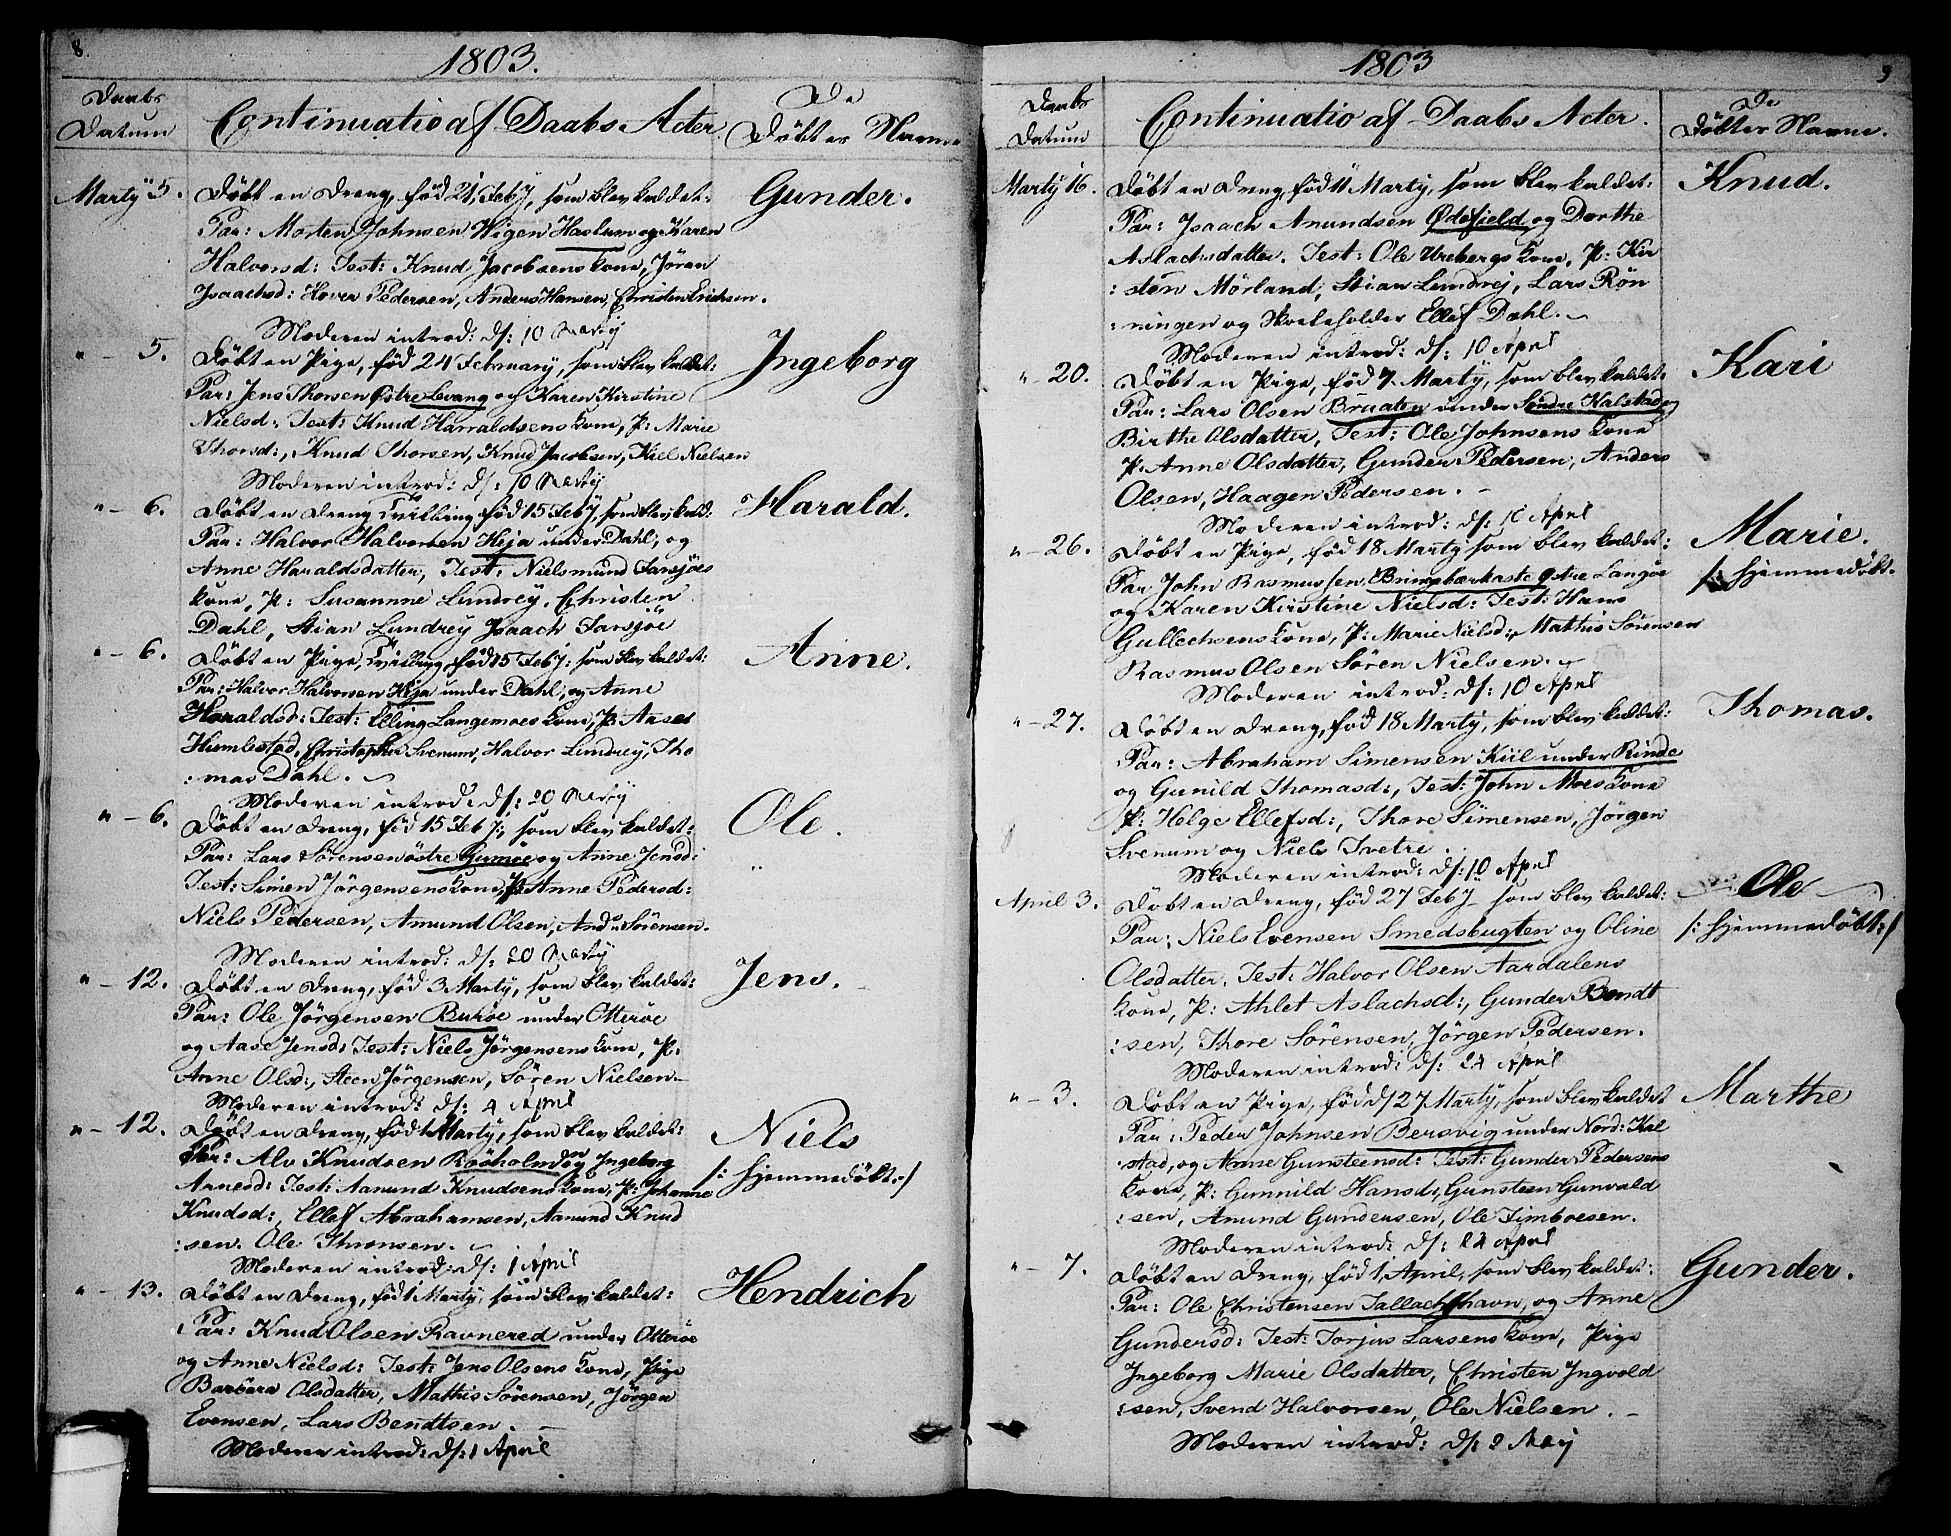 8.
1803.
Daabs Datum
Continuatio af Daabs Acter
De Döbtes Navne
Marty 5.
Döbt en Dreng, föd 21 Feb:, som blev kaldet:
Gunder.
Par: Morten Johnsen Wigen Haslum og Karen
Halvorsd: Test: Knud Jacobsens Kone, Jören
Isaachsd: Hover Pedersen, Anders Hansen, Christen Erichsen.
Moderen introd: d/: 10 Marty
" - 5.
Döbt en Pige, föd 24 February, som blev kaldet:
Ingeborg
Par: Jens Thorsen Østre Levang og Karen Kirstine
Nielsd: Test: Knud Harraldsens Kone, P: Marie
Thorsd:, Knud Thorsen, Knud Jacobsen, Kiel Nielsen
Moderen introd: d/: 10 Marty
" - 6.
Döbt en Dreng Tvilling föd 15 Feb:, som blev kald:
Harald.
Par: Halvor Halvorsen Heja under Dahl, og
Anne Haraldsdatter, Test: Nielsmund Farsjöes
Kone, P: Susannne Lundrey, Christen
Dahl, Stian Lundrey Isaach Farsjöe
" - 6.
Döbt en Pige, Tvilling, föd 15 Feb: som blev kaldet:
Anne.
Par: Halvor Halvorsen Heja under Dahl, og Anne
Haraldsd: Test: Elling Langemoes Kone, P: Aaser
Humlestad, Christopher Svenum, Halvor Lundrey, Tho
:mas Dahl.
Moderen introd: d/: 20 Marty
" - 6.
Döbt en Dreng, föd 15 Feb:, som blev kaldet:
Ole.
Par: Lars Sörensen östre Gumöe og Anne Jensd:
Test: Simen Jörgensens Kone, P: Anne Pedersd:
Niels Pedersen, Amund Olsen, And: Sörensen.
Moderen introd: d/: 20 Marty
" - 12.
Döbt en Dreng, föd 3 Marty, som blev kaldet:
Jens.
Par: Ole Jörgensen Buröe under Otteröe
og Aase Jensd: Test: Niels Jörgensens Kone, P:
Anne Olsd:, Steen Jörgensen, Sören Nielsen
Moderen introd: d/: 4 April
" - 12.
Döbt en Dreng, föd 1 Marty, som blev kaldet:
Niels
Par: Alv Knudsen Rösholmen og Ingeborg
/: Hjemmedöbt :/
Arnesd: Test: Aanund Knudsens Kone, P: Johanne
Knudsd:, Ellef Abrahamsen, Aanund Knud
:sen. Ole Thronsen.
Moderen introd: d/: 1 April
" - 13.
Döbt en Dreng, föd 1 Marty, som blev kaldet:
Hendrich
Par: Knud Olsen Ravnered under Otteröe
og Anne Nielsd: Test: Jens Olsens Kone, Pige
Barbara Olsdatter, Mathis Sörensen, Jörgen
Evensen, Lars Bendtsen.
Moderen introd: d/: 1 April
9
1803
Daabs Datum
Continuatio af Daabs Acter.
De Döbtes Navne.
Marty 16.
Döbt en Dreng, föd 11 Marty, som blev kaldet:
Knud.
Par: Isaach Anundsen Ødefield og Dorthe
Aslachsdatter. Test: Ole Urebergs Kone, P: Kir
:sten Mörland, Stian Lundrej, Lars Rön
:ningen og Skoleholder Ellef Dahl.
Moderen introd: d/: 10 April
" - 20.
Döbt en Pige, föd 7 Marty, som blev kaldet:
Kari
Par: Lars Olsen Bruaten under Söndre Kalstad og
Birthe Olsdatter, Test: Ole Johnsens Kone
P: Anne Olsdatter, Gunder Pedersen, Anders
Olsen, Haagen Pedersen.
Moderen introd: d/: 10 April
" - 26.
Döbt en Pige, föd 18 Marty som blev kaldet:
Marie.
Par John Rasmussen Bringebærkaste Østre Langöe
/: Hjemmedöbt.
og Karen Kirstine Nielsd: Test: Hans
Gullechsens Kone, P: Marie Nielsd:, Mathis Sörensen
Rasmus Olsen Sören Nielsen.
Moderen introd: d/: 10 April
" - 27.
Döbt en Dreng, föd 18 Marty, som blev kaldet:
Thomas.
Par: Abraham Simensen Kiil under Rinde
og Gunild Thomasd:, Test: John Moes Kone
P: Helge Ellefsd:, Thore Simensen, Jörgen
Svenum og Niels Tvetre.
Moderen introd: d/: 10 April
April 3.
Döbt en Dreng, föd 27 Feb: som blev kaldet:
Ole
Par: Niels Evensen Smedsbugten og Oline
/: Hjemmedöbt :/
Olsdatter. Test: Halvor Olsen Aardalens
Kone, P: Ahlet Aslachsd:, Gunder Bendt
:sen, Thore Sörensen, Jörgen Pedersen.
Moderen introd: d/: 24 April
" - 3.
Döbt en Pige, föd d/ 27 Marty, som blev kaldet
Marthe
Par: Peder Johnsen Bersvig under Nord: Kal
:stad, og Anne Gunsteensd: Test: Gunder Pedersens
Kone, P: Gunnild Hansd:, Gunsteen Gunvald
:sen, Anund Gundersen, Ole Timboesen.
Moderen introd: d/: 24 April
" - 7.
Döbt en Dreng, föd 1 April, som blev kaldet:
Gunder.
Par: Ole Christensen Tallachshavn, og Anne
Gundersd: Test: Torjus Larsens Kone, Pige
Ingeborg Marie Olsdatter, Christen Ingvold
:sen, Svend Halvorsen, Ole Nielsen.
Moderen introd: d/: 2 May